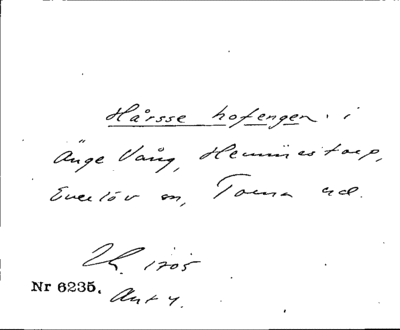 Hårsse hofengen i
Änge Vång, Hemmestorp,
Everlöv sn, Torna hd.
1705
Nr 6235.
Akt 4.